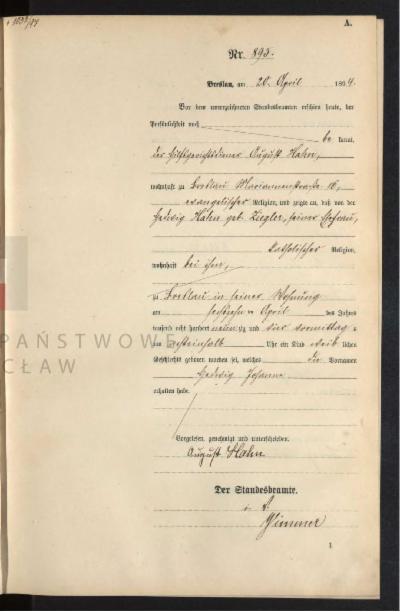 + 1039/94
A.
Nr. 893.
Breslau, am 20. April 1894.
Vor dem unterzeichneten Standesbeamten erschien heute, der
Persönlichkeit nach
be kannt,
der Hilfsgerichtsdiener August Hahn,
wohnhaft zu Breslau Mariannenstraße 16,
evangelischer Religion, und zeigte an, daß von der
Hedwig Hahn geb. Ziegler, seiner Ehefrau,
katholischer Religion,
wohnhaft bei ihm,
zu Breslau in seiner Wohnung
am sechzehn ten April des Jahres
tausend acht hundert neunzig und vier vormittag s
um Uhr ein Kind weib lichen
Geschlechts geboren worden sei, welches die Vornamen
Hedwig Johanna
erhalten habe.
Vorgelesen, genehmigt und unterschrieben.
August Hahn
Der Standesbeamte.
i. V.
1
PAŃSTWOWE
CŁAW